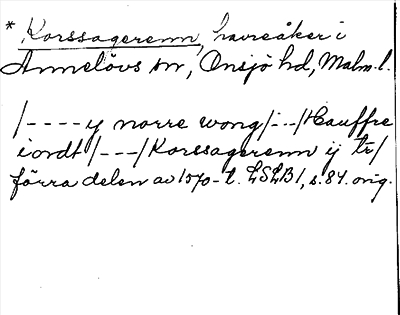 * Korssagerenn, havreåker i
Annelövs sn, Onsjö hd, Malm. l.
/----y norre wong/---/Hauffre
iordt/---/Korssagerenn ij tr/
förra delen av 1570-t. LSLB1, s.84. orig.